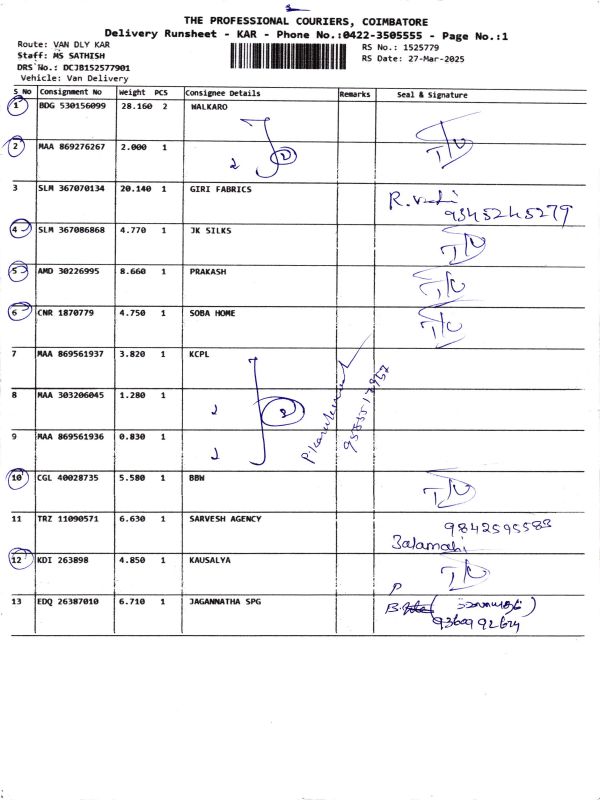 THE PROFESSIONAL COURIERS, COIMBATORE
Delivery Runsheet - KAR - Phone No.:0422-3505555 - Page No.:1
Route: VAN DLY KAR
RS No.: 1525779
Staff: MS SATHISH
RS Date: 27-Mar-2025
DRS No.: DCJB152577901
Vehicle: Van Delivery
S No Consignment No Weight PCS Consignee Details Remarks Seal & Signature
1 BDG 530156099 28.160 2 WALKARO
2 MAA 869276267 2.000 1
3 SLM 367070134 20.140 1 GIRI FABRICS
9345245279
4 SLM 367086868 4.770 1 JK SILKS
5 AMD 30226995 8.660 1 PRAKASH
6 CNR 1870779 4.750 1 SOBA HOME
7 MAA 869561937 3.820 1 KCPL
8 MAA 303206045 1.280 1
9 MAA 869561936 0.830 1
10 CGL 40028735 5.580 1 BBW
11 TRZ 11090571 6.630 1 SARVESH AGENCY
9842595583
Balamani
12 KDI 263898 4.850 1 KAUSALYA
13 EDQ 26387010 6.710 1 JAGANNATHA SPG